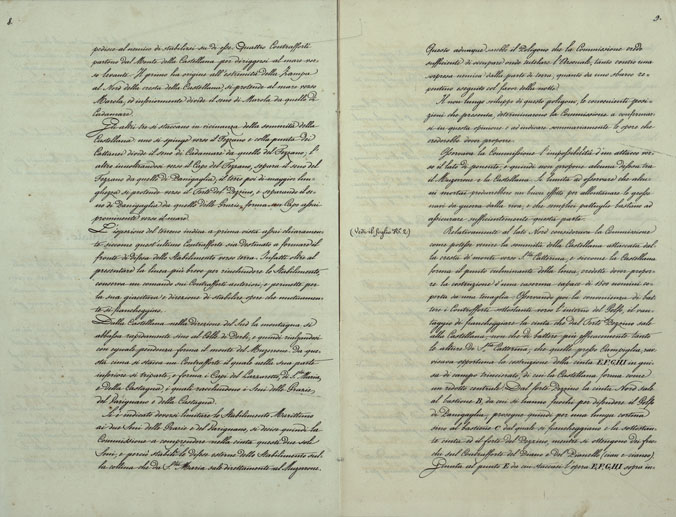 8.
pedisce al nemico di stabilirsi su di essi. Quattro Contrafforti
partono dal Monte della Castellana per dirigersi al mare ver-
so levante. Il primo ha origine all'estremità della Rampa
al Nord della cresta della Castellana, si protende al mare verso
Marola, ed inferiormente divide il seno di Marola da quello di
Cadamare
Gli altri tre si staccano in vicinanza della sommità della
Castellana: uno si spinge verso il Fezzano e colla punta dei
Cattanei divide il seno di Cadamare da quello del Fezzano; l'
altro inoltrandosi verso il Capo del Fezzano, separa il seno del
Fezzano da quello di Panigaglia; il terzo poi di maggior lun-
ghezza si protende verso il Forte del Pezzino, e separando il se-
no di Panigaglia da quello delle Grazie, forma un Capo assai
prominente verso il mare.
L'ispezione del terreno indica a prima vista assai chiaramen-
te, siccome quest'ultimo Contrafforte sia destinato a formare il
fronte di difesa dello Stabilimento verso terra. Infatti oltre al
presentare la linea più breve per rinchiudere lo Stabilimento,
conserva un comando sui Contrafforti anteriori, e permette per
la sua giacitura e direzione di stabilire opere che mutuamen-
te si fiancheggino.
Dalla Castellana nella direzione del Sud la montagna si
abbassa rapidamente sino al Colle di Derbi, e quindi rialzandosi
con eguale prontezza forma il monte del Muzzerone. Da que-
sta cima si stacca un Contrafforte il quale nella sua parte
inferiore si triparte, e forma i Capi del Lazzaretto, di S.ta Maria,
e della Castagna, i quali racchiudono i Seni delle Grazie,
del Varignano e della Castagna.
Si è indicato doversi limitare lo Stabilimento Marittimo
ai due Seni delle Grazie e del Varignano, si decise quindi la
Commissione a comprendere nella cinta questi due soli
Seni, e perciò stabilì la difesa esterna dello Stabilimento sul-
la collina che da S.ta Maria sale direttamente al Muzzerone.
9.
Questo adunque sarebbe il Poligono che la Commissione crede
sufficiente di occupare onde tutelare l'Arsenale, tanto contro una
sorpresa nemica dalla parte di terra, quanto da uno sbarco re-
pentino eseguito col favore della notte.
Il non lungo sviluppo di questo poligono, le convenienti posi-
zioni che presenta, determinarono la Commissione a confermar-
si in questa opinione e ad indicare sommariamente le opere che
crederebbe dover proporre.
Ritenuta la Commissione l'impossibilità d'un attacco ver-
so il lato di ponente, e quindi non proporre alcuna difesa tra
il Muzzerone e la Castellana. Si limita ad osservare che alcu-
ni mortai produrrebbero un buon effetto per allontanare le grosse
navi da guerra dalla riva, e che semplici pattuglie bastino ad
assicurare sufficientemente questa parte.
Relativamente al lato Nord considerava la Commissione
come potesse venire la sommità della Castellana attaccata dal-
la cresta di monte verso S.ta Catterina, e siccome la Castellana
forma il punto culminante della linea, credette dover propor-
re la costruzione d'una caserma capace di 1500 uomini co-
perta da una tenaglia. Osservando poi la convenienza di bat-
tere i Contrafforti sottostanti verso l'interno del Golfo, il van-
taggio di fiancheggiare la cinta che dal Forte Pezzino sale
alla Castellana, non che di battere più efficacemente tanto
le alture di S.ta Catterina, che quelle presso Campiglia, rav-
visava opportuna la costruzione della cinta E.F.G.H.I in gui-
sa di campo trincierato, di cui la Castellana forma come
un ridotto centrale. Dal forte Pezzino la cinta Nord sale
al bastione B, da cui si hanno fuochi per difendere il Golfo
di Panigaglia, prosegue quindi per una lunga cortina
sino al bastione C dal quale si fiancheggiano e la sottostan-
te cinta ed il forte del Pezzino, mentre si ottengono dei fuo-
chi sul Contrafforte del
Giunta al punto E da cui staccasi l'opera E.F.G.H.I sopra in-
(Vedi il foglio N.° 2)